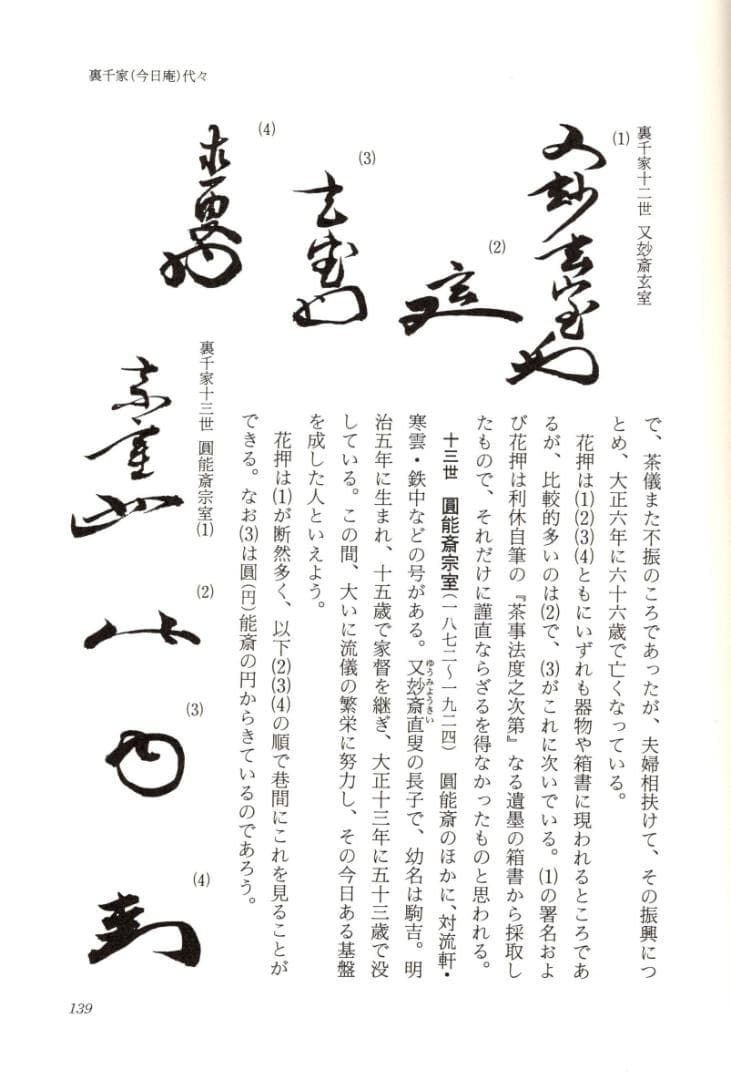 裏千家(今日庵)代々
裏千家十二世 又玅斎玄室
(1)
(2)
(3)
(4)
で、茶儀また不振のころであったが、夫婦相扶けて、その振興につ
とめ、大正六年に六十六歳で亡くなっている。
花押は(1)(2)(3)(4)ともにいずれも器物や箱書に現われるところであ
るが、比較的多いのは(2)で、(3)がこれに次いでいる。(1)の署名およ
び花押は利休自筆の『茶事法度之次第』なる遺墨の箱書から採取し
たもので、それだけに謹直ならざるを得なかったものと思われる。
十三世 圓能斎宗室(一八七二〜一九二四) 圓能斎のほかに、対流軒・
寒雲・鉄中などの号がある。又玅斎直叟の長子で、幼名は駒吉。明
ゆうみようさい
治五年に生まれ、十五歳で家督を継ぎ、大正十三年に五十三歳で没
している。この間、大いに流儀の繁栄に努力し、その今日ある基盤
を成した人といえよう。
花押は(1)が断然多く、以下(2)(3)(4)の順で巷間にこれを見ることが
できる。なお(3)は圓(円)能斎の円からきているのであろう。
裏千家十三世 圓能斎宗室(1)
(2)
(3)
(4)
139